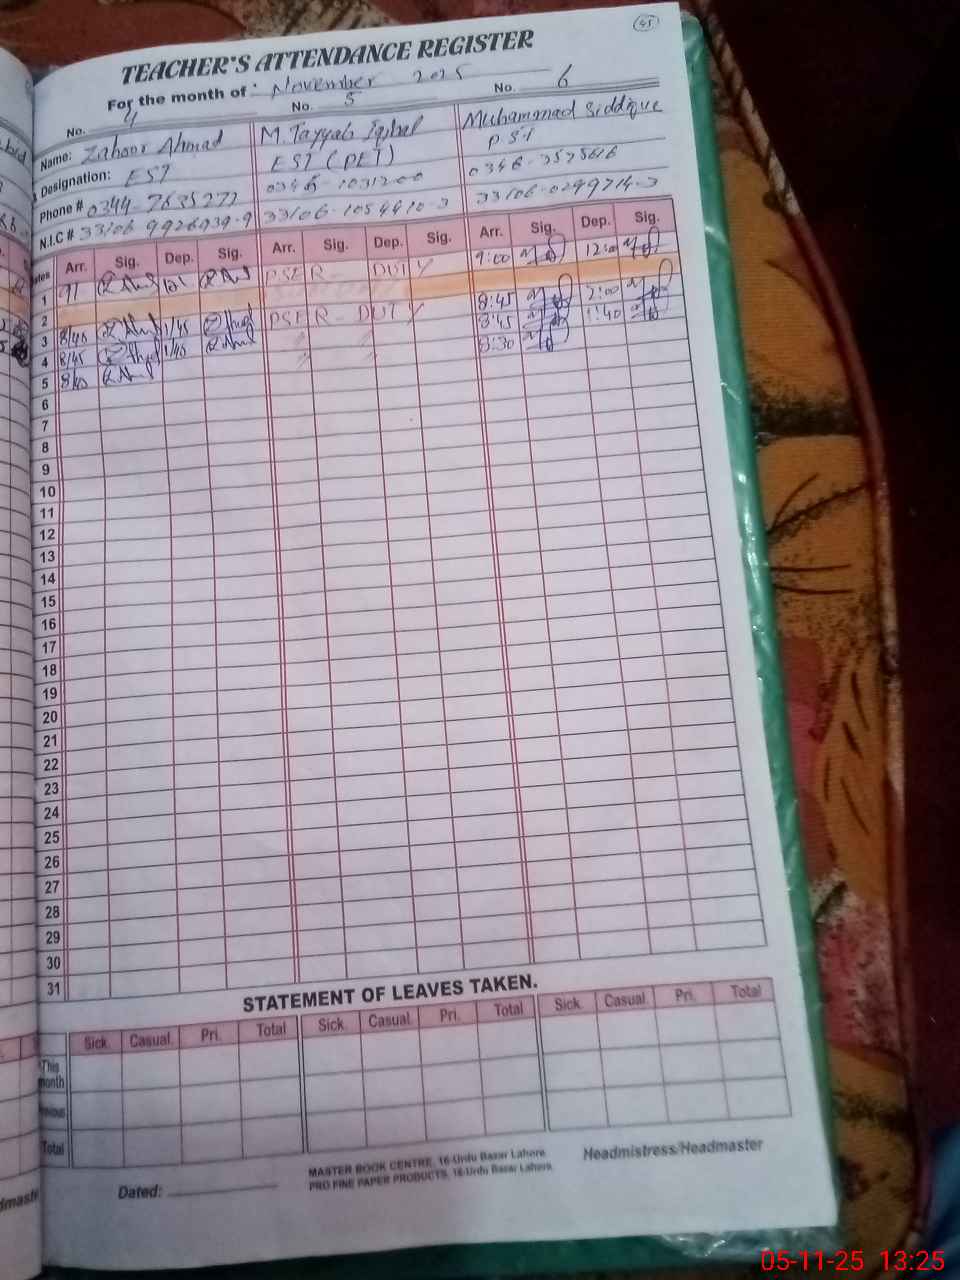 45
TEACHER'S ATTENDANCE REGISTER
For the month of : November 2025
No. 4 No. 5 No. 6
Name: Zahoor Ahmad M. Tayyab Iqbal Muhammad Siddique
Designation: EST EST (PET) P.S.T
Phone # 0344-7635277 0346-1031200
N.I.C # 33106 9926939-9 33106-1054410-3 33106-0299714-3
Arr. Sig. Dep. Sig. Arr. Sig. Dep. Sig. Arr. Sig. Dep. Sig.
1 PSER- DUTY 9:00 12:00
2
3 8/40 1/45 PSER- DUTY 8:45 2:00
4 8/45 1/40 " " 8:45 1:40
5 8/40 " " 8:30
6
7
8
9
10
11
12
13
14
15
16
17
18
19
20
21
22
23
24
25
26
27
28
29
30
31
STATEMENT OF LEAVES TAKEN.
Sick. Casual. Pri. Total Sick. Casual. Pri. Total Sick. Casual. Pri. Total
This
month
Total
MASTER BOOK CENTRE, 16-Urdu Bazar Lahore.
PRO FINE PAPER PRODUCTS, 16-Urdu Bazar Lahore.
Headmistress/Headmaster
Dated:
05-11-25 13:25